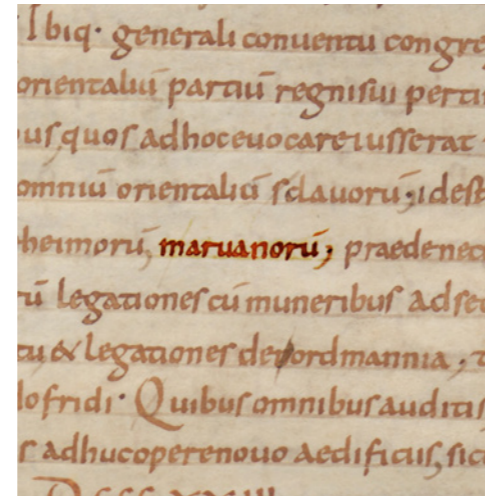 Ibiq· generali conuentu congre
orientaliū partiū regni sui perti
us, quos ad hoc euocare iusserat
omniū orientaliū sclauorū; idest
heimorū, maruanorū; praedenec
rū legationes cū muneribus ad se
tu & legationes de nordmannia,
lofridi· Quibus omnibus auditis
s adhuc opere nouo aedificiis, sic